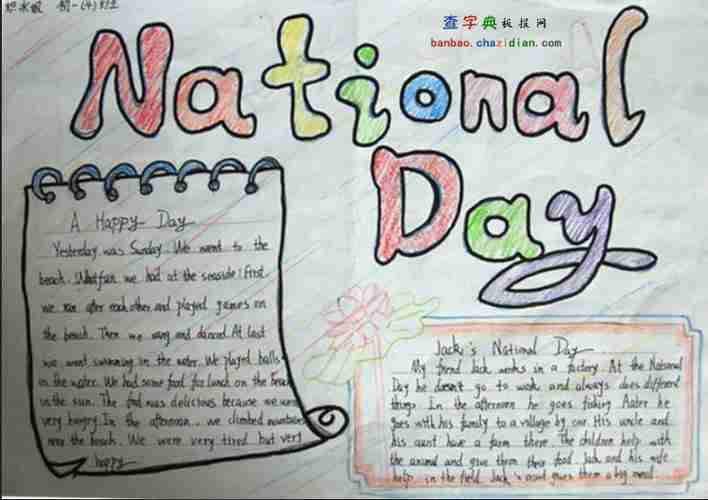 初一(4)
查字典板报网
banbao.chazidian.com
National
Day
A Happy Day
Yesterday was Sunday. We went to the
beach. What fun we had at the seaside! First
we ran after each other and played games on
the beach. Then we sang and danced. At last
we went swimming in the water. We played balls
in the water. We had some food for lunch on the beach
in the sun. The food was delicious because we were
very hungry. In the afternoon, we climbed mountains
near the beach. We were very tired but very
happy
Jack's National Day
My friend Jack works in a factory. At the National
Day he doesn't go to work and always does different
things. In the afternoon he goes fishing Aater he
goes with his family to a village by car. His uncle and
his aunt have a farm there. The children help with
the animal and give them their food. Jack and his wife
help in the field. Jack's aunt gives them a big meal.